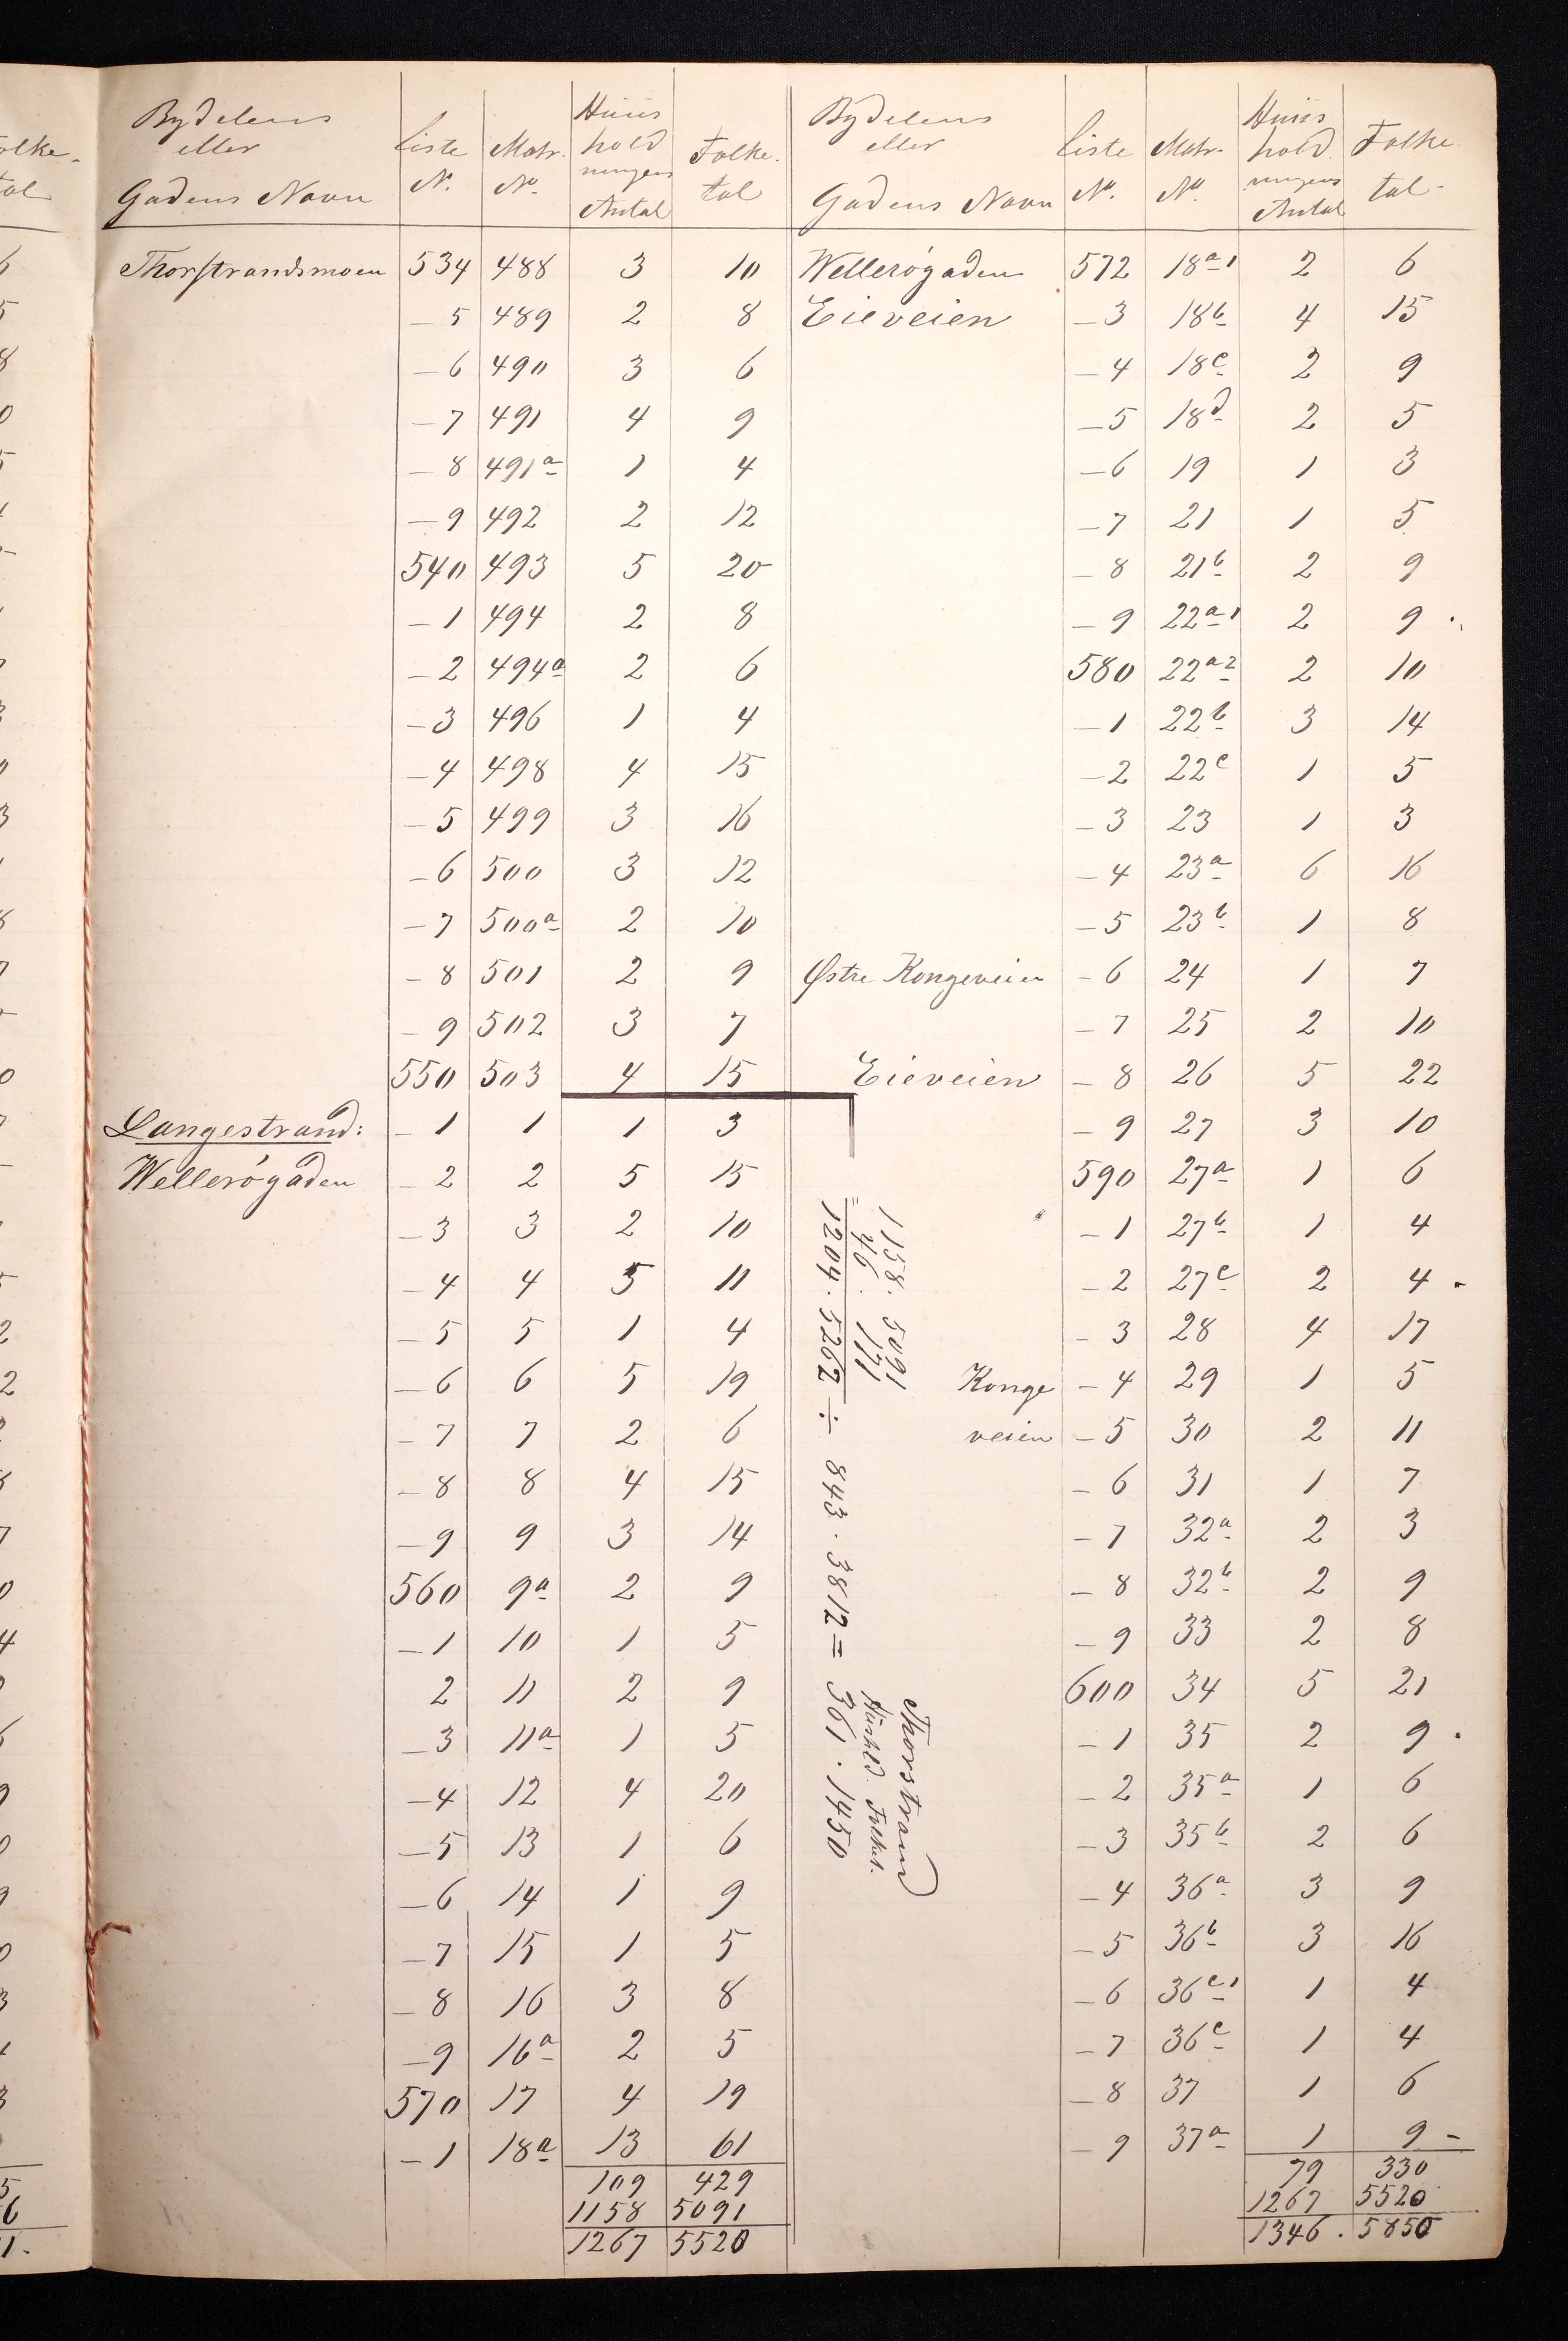 Bydelens eller Gadens Navn | Liste N. | Matr. No. | Huusholdningens Antal | Folketal
Thorstrandsmoen | 534 | 488 | 3 | 10
– 5 | 489 | 2 | 8
– 6 | 490 | 3 | 6
– 7 | 491 | 4 | 9
– 8 | 491a | 1 | 4
– 9 | 492 | 2 | 12
540 | 493 | 5 | 20
– 1 | 494 | 2 | 8
– 2 | 494a | 2 | 6
– 3 | 496 | 1 | 4
– 4 | 498 | 4 | 15
– 5 | 499 | 3 | 16
– 6 | 500 | 3 | 12
– 7 | 500a | 2 | 10
– 8 | 501 | 2 | 9
– 9 | 502 | 3 | 7
550 | 503 | 4 | 15
Langestrand: | – 1 | 1 | 1 | 3
Wellerøgaden | – 2 | 2 | 5 | 15
– 3 | 3 | 2 | 10
– 4 | 4 | 5 | 11
– 5 | 5 | 1 | 4
– 6 | 6 | 5 | 19
– 7 | 7 | 2 | 6
– 8 | 8 | 4 | 15
– 9 | 9 | 3 | 14
560 | 9a | 2 | 9
– 1 | 10 | 1 | 5
2 | 11 | 2 | 9
– 3 | 11a | 1 | 5
– 4 | 12 | 4 | 20
– 5 | 13 | 1 | 6
– 6 | 14 | 1 | 9
– 7 | 15 | 1 | 5
– 8 | 16 | 3 | 8
– 9 | 16a | 2 | 5
570 | 17 | 4 | 19
– 1 | 18a | 13 | 61
109 | 429
1158 | 5091
1267 | 5520
Bydelens eller Gadens Navn | Liste No. | Matr. No. | Huusholdningens Antal | Folketal
Wellerøgaden | 572 | 18a1 | 2 | 6
Eieveien | – 3 | 18b | 4 | 15
– 4 | 18c | 2 | 9
– 5 | 18d | 2 | 5
– 6 | 19 | 1 | 3
– 7 | 21 | 1 | 5
– 8 | 21b | 2 | 9
– 9 | 22a1 | 2 | 9
580 | 22a2 | 2 | 10
– 1 | 22b | 3 | 14
– 2 | 22c | 1 | 5
– 3 | 23 | 1 | 3
– 4 | 23a | 6 | 16
– 5 | 23b | 1 | 8
Østre Kongeveien | – 6 | 24 | 1 | 7
– 7 | 25 | 2 | 10
Eieveien | – 8 | 26 | 5 | 22
– 9 | 27 | 3 | 10
590 | 27a | 1 | 6
– 1 | 27b | 1 | 4
– 2 | 27c | 2 | 4
– 3 | 28 | 4 | 17
Konge | – 4 | 29 | 1 | 5
veien | – 5 | 30 | 2 | 11
– 6 | 31 | 1 | 7
– 7 | 32a | 2 | 3
– 8 | 32b | 2 | 9
– 9 | 33 | 2 | 8
600 | 34 | 5 | 21
– 1 | 35 | 2 | 9
– 2 | 35a | 1 | 6
– 3 | 35b | 2 | 6
– 4 | 36a | 3 | 9
– 5 | 36b | 3 | 16
– 6 | 36c1 | 1 | 4
– 7 | 36c | 1 | 4
– 8 | 37 | 1 | 6
– 9 | 37a | 1 | 9
79 | 330
1267 | 5520
1346 . 5850
Thorstrand
Hushld. Folket.
1158. 5091
46. 171
1204. 5262 ÷ 843. 3812 = 361. 1450